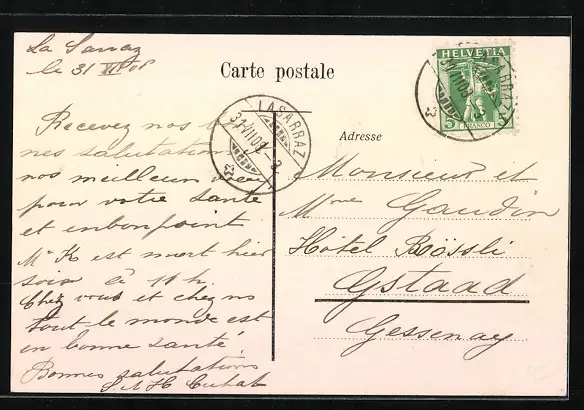 La Sarraz
le 31 VII 08
Carte postale
HELVETIA
5 FRANCO 5
LA SARRAZ
31 VII 09
Adresse
Recevez nos
nes salutations
nos meilleurs
pour votre santé
et enbonpoint
Mr K est mort hier
soir à 11 h.
Chez vous et chez ns
tout le monde est
en bonne santé
Bonnes salutations
Monsieur et
Mme Gaudin
Hôtel Rössli
Gstaad
Gessenay